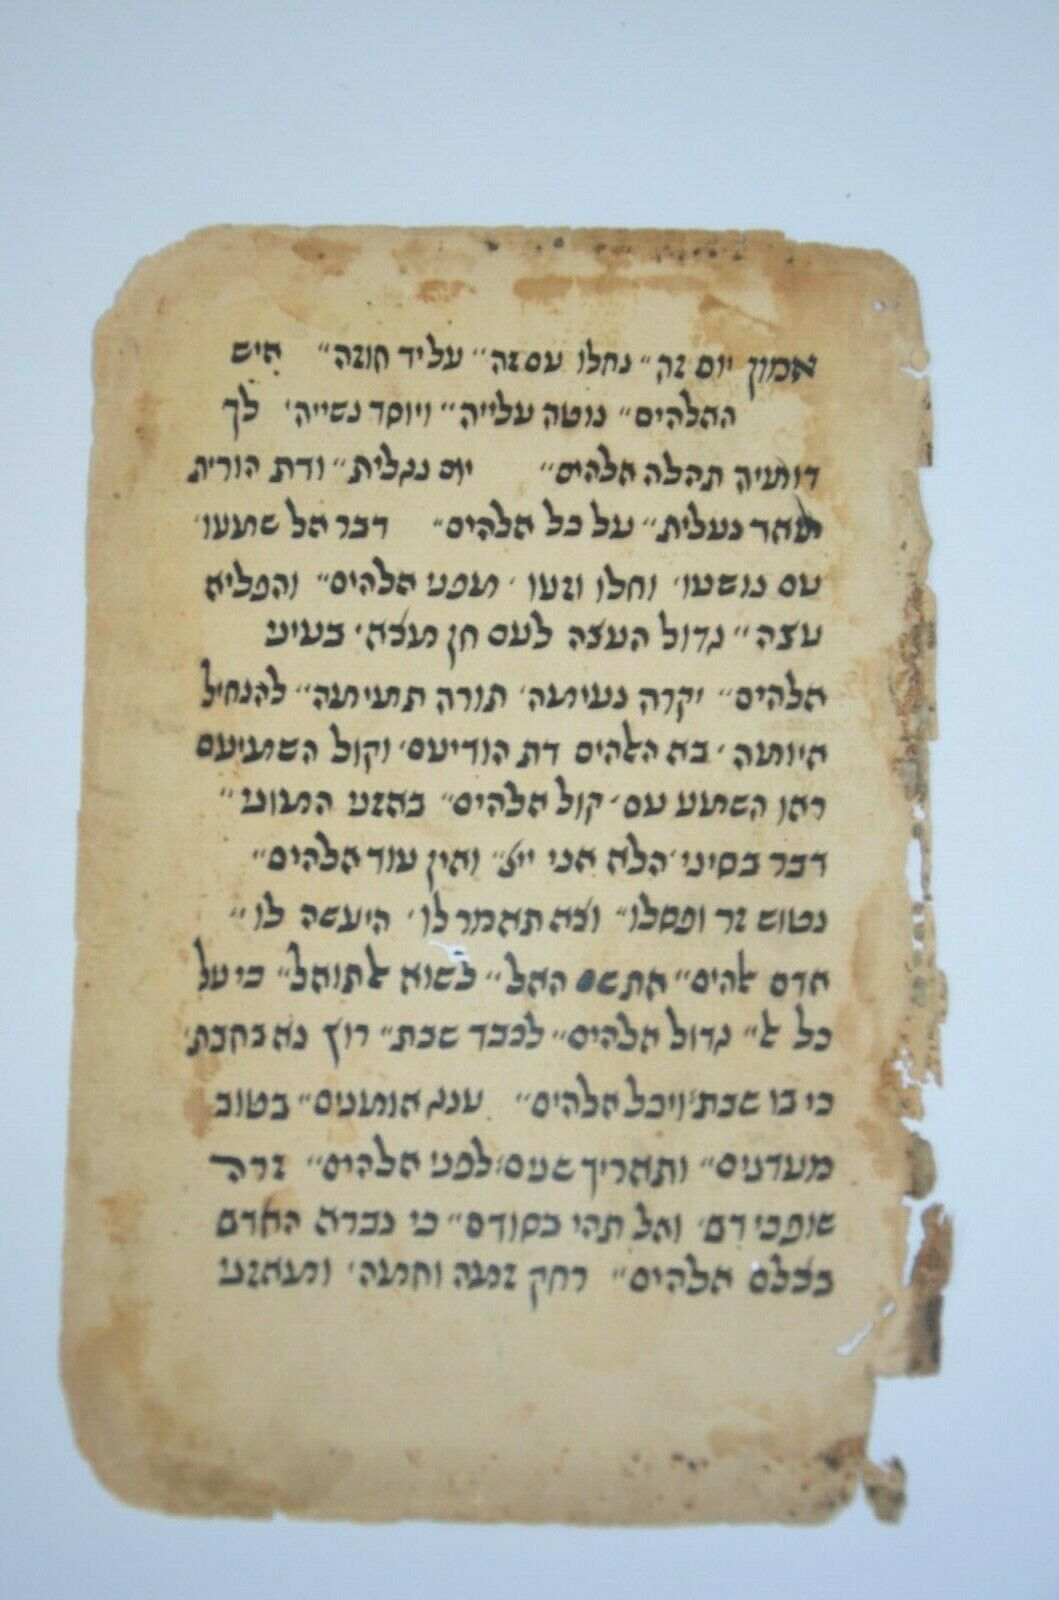 אמון יום זה״ נחלו עם זה״ על יד חוזה״ איש
האלהים״ נוטה עלייה״ ויוסד נשייה׳ לך
דומיה תהלה אלהים״ יום נגלית״ ודת הורית
מאד נעלית״ על כל אלהים״ דבר אל שמעו׳
עם נושעו׳ וחלו וזעו׳ מפני אלהים״ והפליא
עצה״ גדול העצה לעם חן מצא׳ בעיני
אלהים״ יקרה נעימה׳ תורה תמימה״ להנחיל
איומה׳ בא האלהים דת הודיעם׳ וקול השמיעם
ראו השמע עם׳ קול אלהים״ באזני המוני״
דבר בסיני׳ הלא אני ייי״ ואין עוד אלהים״
נטוש זר ופסלו״ ולא תאמר לו׳ היעשה לו״
אדם אלהים״ את שם האל״ לשוא אל תואל״ כי על
כל אל״ גדול אלהים״ לכבד שבת״ רוץ נא בחבת׳
כי בו שבת׳ ויכל אלהים״ ענג אומנים״ בטוב
מעדנים״ ותאריך שנים׳ לפני אלהים״ זרה
שופכי דם׳ ואל תהי בסודם״ כי נברא האדם
בצלם אלהים״ רחק זמה וחמה׳ ומאזני